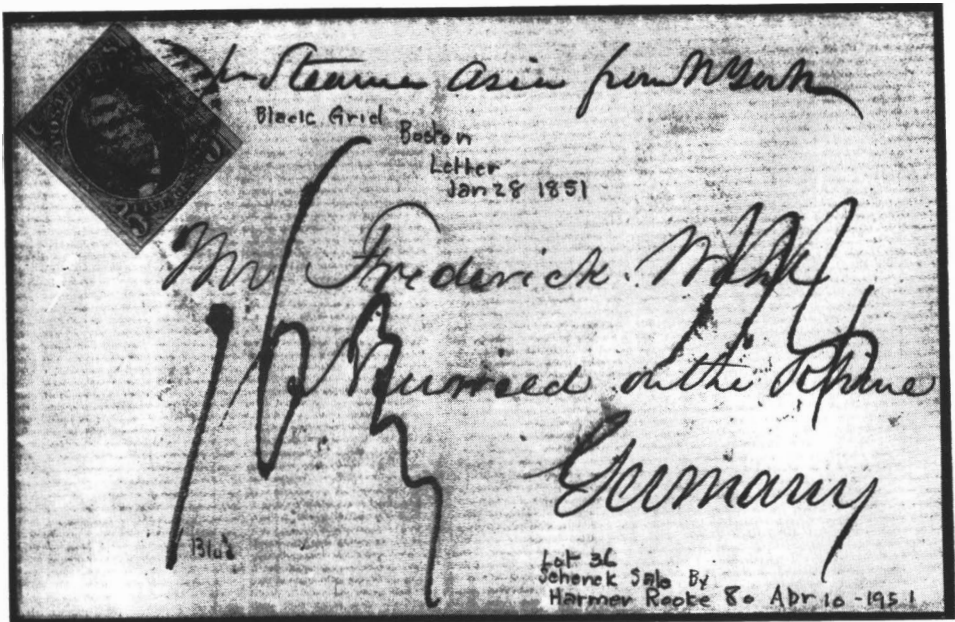 Steamer Asia from N York
Black Grid
Boston
Letter
Jan 28 1851
Mr Frederick
on the Rhine
Germany
Blue
Lot 36
Schenck Sale By
Harmer Rooke 80 Apr 10 - 1951